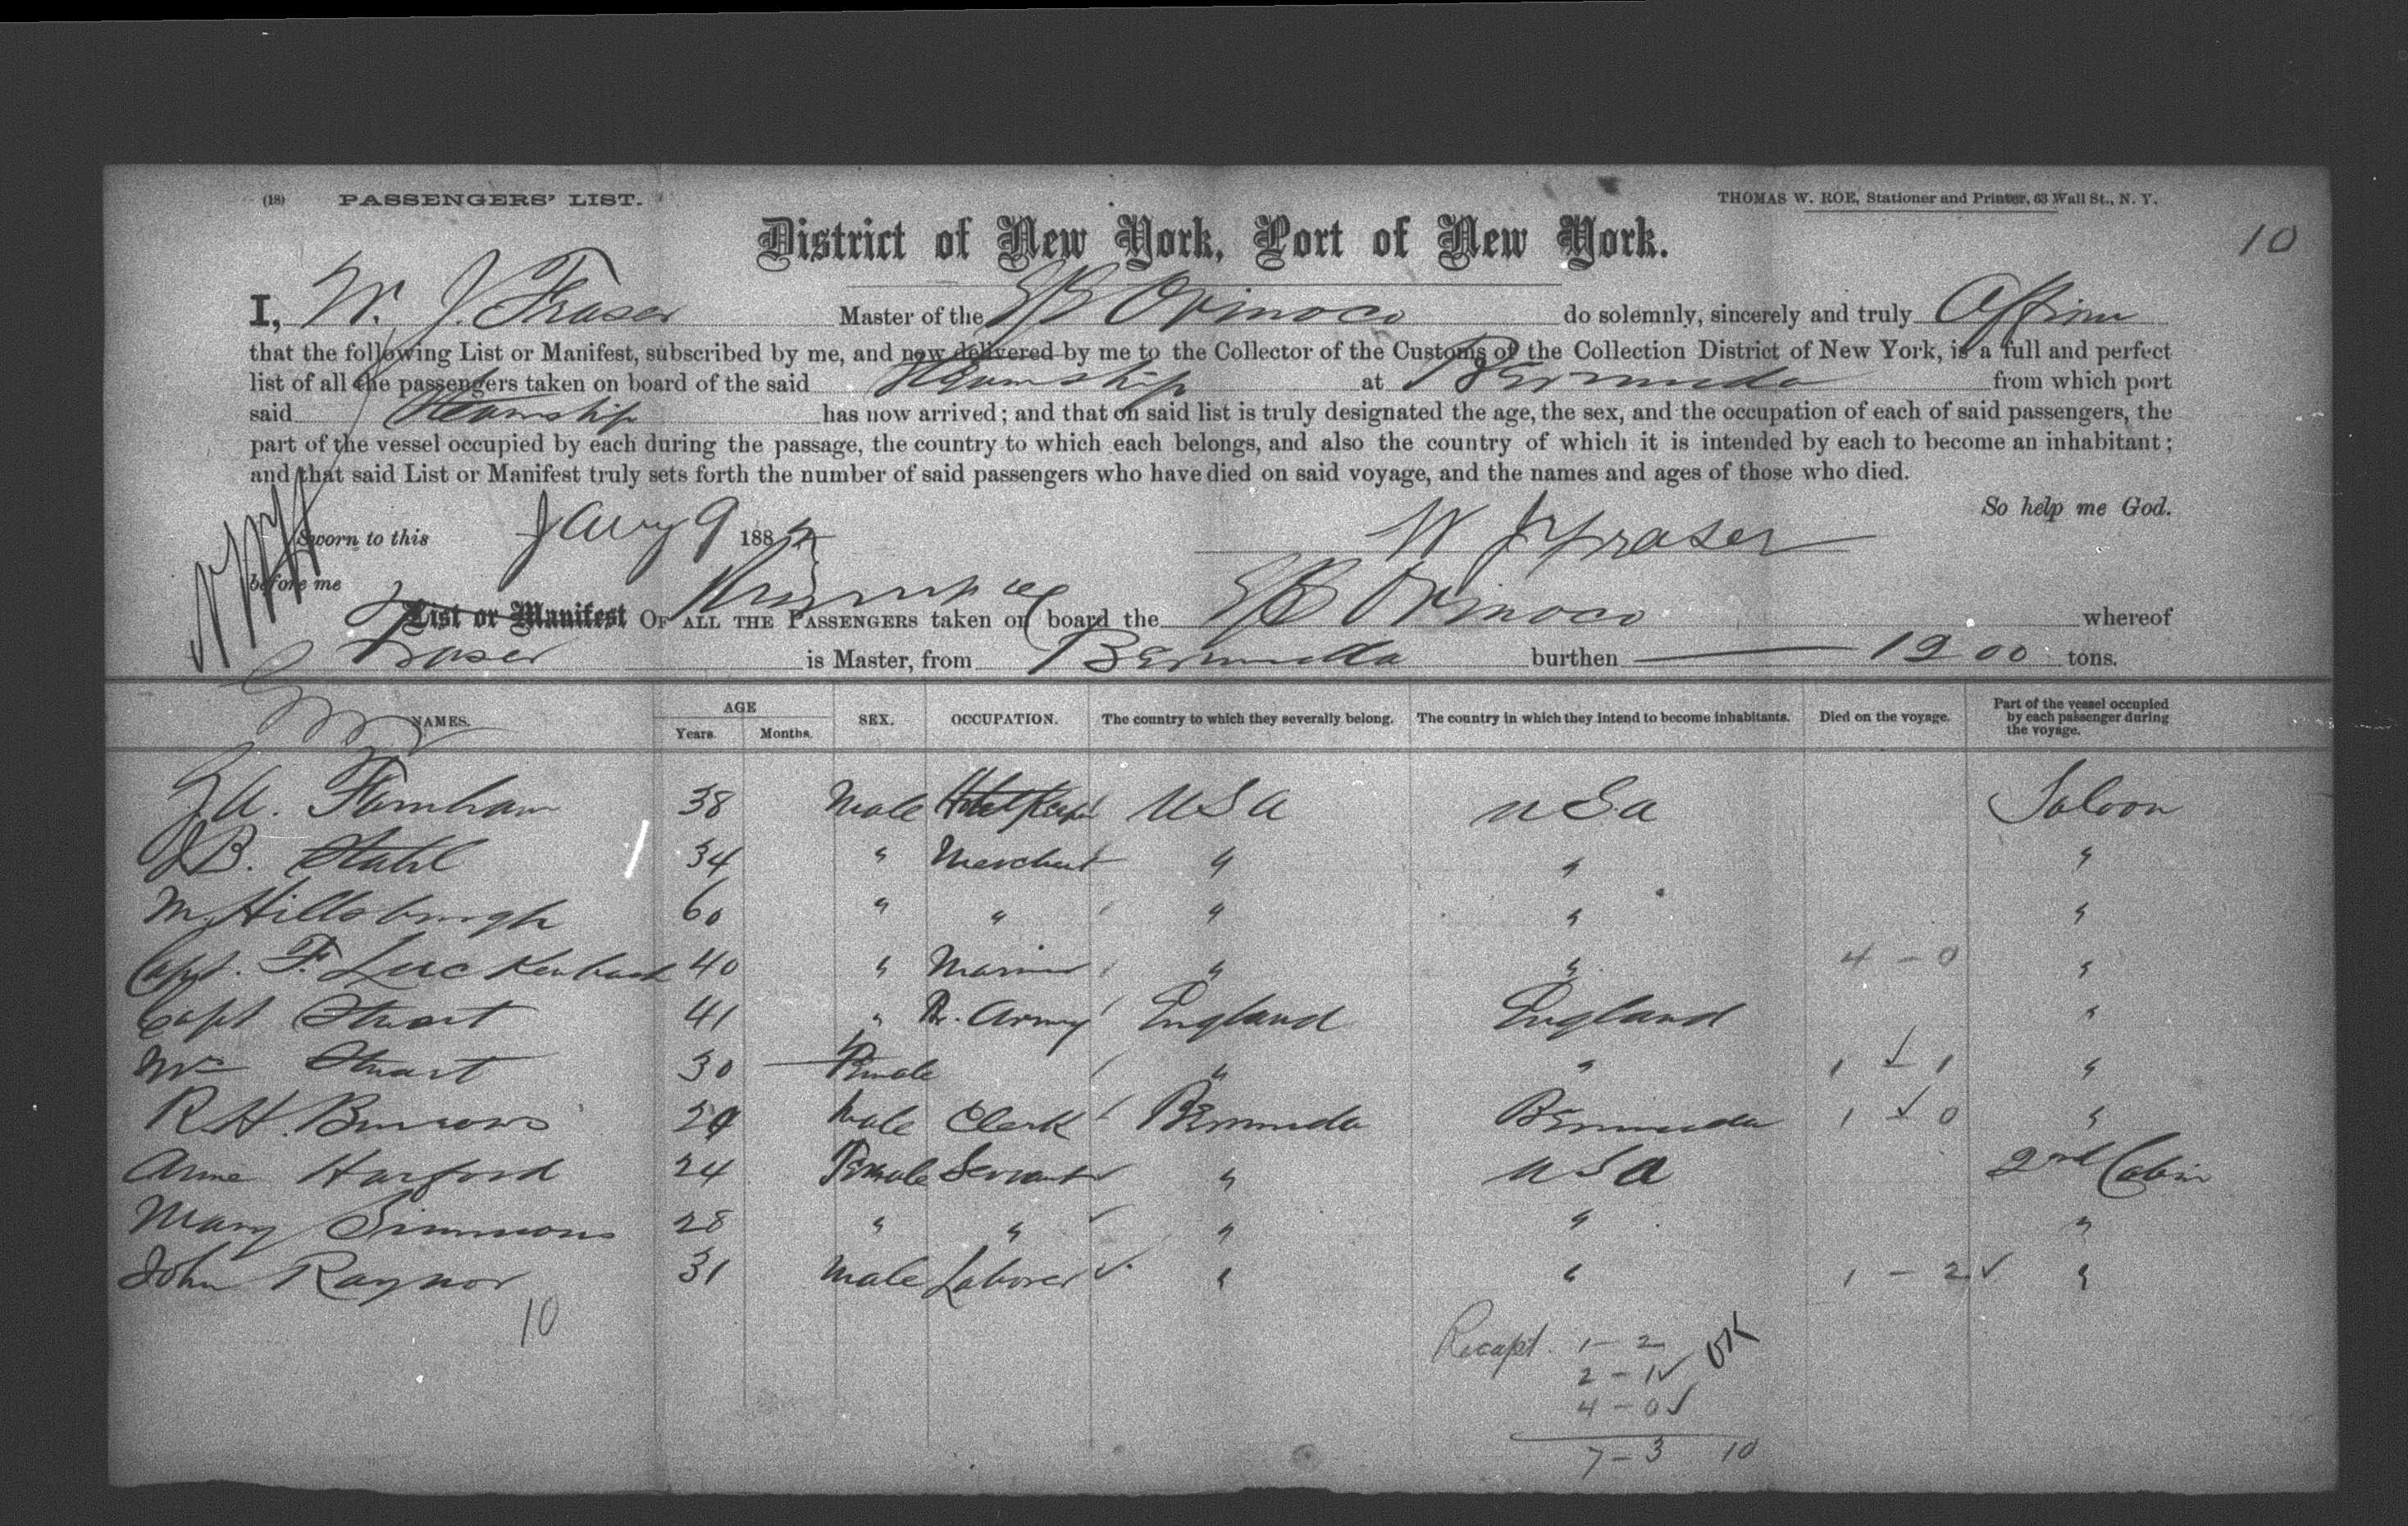 (18) PASSENGERS' LIST. THOMAS W. ROE, Stationer and Printer, 63 Wall St., N. Y.
District of New York, Port of New York. 10
I, W. J. Fraser Master of the S/S Orinoco do solemnly, sincerely and truly Affirm
that the following List or Manifest, subscribed by me, and now delivered by me to the Collector of the Customs of the Collection District of New York, is a full and perfect
list of all the passengers taken on board of the said Steamship at Bermuda from which port
said Steamship has now arrived; and that on said list is truly designated the age, the sex, and the occupation of each of said passengers, the
part of the vessel occupied by each during the passage, the country to which each belongs, and also the country of which it is intended by each to become an inhabitant;
and that said List or Manifest truly sets forth the number of said passengers who have died on said voyage, and the names and ages of those who died.
So help me God.
Sworn to this Jany 9 188 W J Fraser
before me
List or Manifest OF ALL THE PASSENGERS taken on board the S/S Orinoco whereof
Fraser is Master, from Bermuda burthen 1900 tons.
NAMES. AGE Years. Months. SEX. OCCUPATION. The country to which they severally belong. The country in which they intend to become inhabitants. Died on the voyage. Part of the vessel occupied by each passenger during the voyage.
A. Farnham 38 Male USA USA Saloon
J B. Stahl 34 " Merchant " " "
M. Hillsburgh 60 " " " " "
Capt. F. Luckenback 40 " Mariner " " 4 - 0 "
Capt Stuart 41 " Br. Army England England "
Mrs Stuart 30 Female " " 1 - 1 "
R. H. Burrows 29 Male Clerk Bermuda Bermuda 1 - 0 "
Anne Harford 24 Female Servant " USA 2nd Cabin
Mary Simmons 28 " " " " "
John Raynor 31 Male Laborer " " 1 - 2 "
10
Recapt. 1 - 2 OK
2 - 1
4 - 0
7 - 3 10